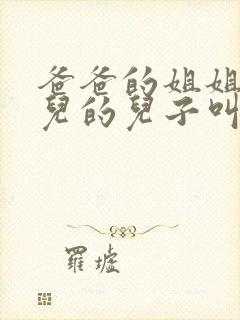 爸爸的姐姐
兒的兒子叫
羅墟